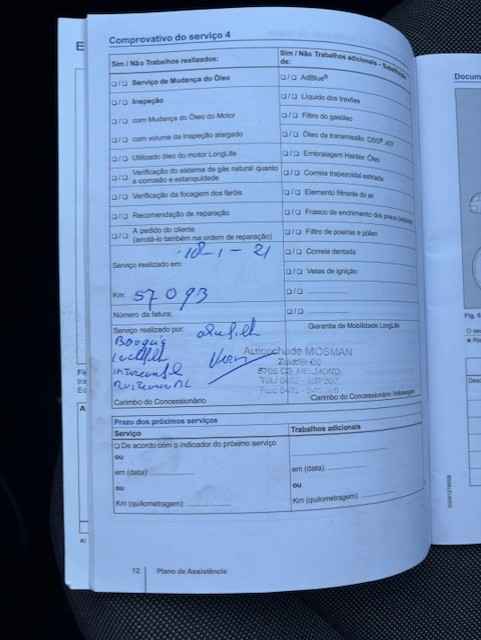 Comprovativo do serviço 4
Sim / Não Trabalhos realizados:
❑ / ❑ Serviço de Mudança do Óleo
❑ / ❑ Inspeção
❑ / ❑ com Mudança do Óleo do Motor
❑ / ❑ com volume da inspeção alargado
❑ / ❑ Utilizado óleo do motor LongLife
❑ / ❑ Verificação do sistema de gás natural quanto
a corrosão e estanquidade
❑ / ❑ Verificação da focagem dos faróis
❑ / ❑ Recomendação de reparação
❑ / ❑ A pedido do cliente
(anotá-lo também na ordem de reparação)
Serviço realizado em:
18-1-21
Km: 57093
Número da fatura:
Serviço realizado por:
Carimbo do Concessionário
Sim / Não Trabalhos adicionais - Substituição
de:
❑ / ❑ AdBlue®
❑ / ❑ Líquido dos travões
❑ / ❑ Filtro do gasóleo
❑ / ❑ Óleo da transmissão
❑ / ❑ Embraiagem Haldex Óleo
❑ / ❑ Correia trapezoidal estriada
❑ / ❑ Elemento filtrante do ar
❑ / ❑ Frasco de enchimento dos pneus
❑ / ❑ Filtro de poeiras e pólen
❑ / ❑ Correia dentada
❑ / ❑ Velas de ignição
❑ / ❑
❑ / ❑
Garantia de Mobilidade LongLife
Autoschade MOSMAN
HELMOND
Carimbo do Concessionário Volkswagen
Prazo dos próximos serviços
Serviço
❑ De acordo com o indicador do próximo serviço
ou
em (data):
ou
Km (quilometragem):
Trabalhos adicionais
em (data):
ou
Km (quilometragem):
12 Plano de Assistência
Docum